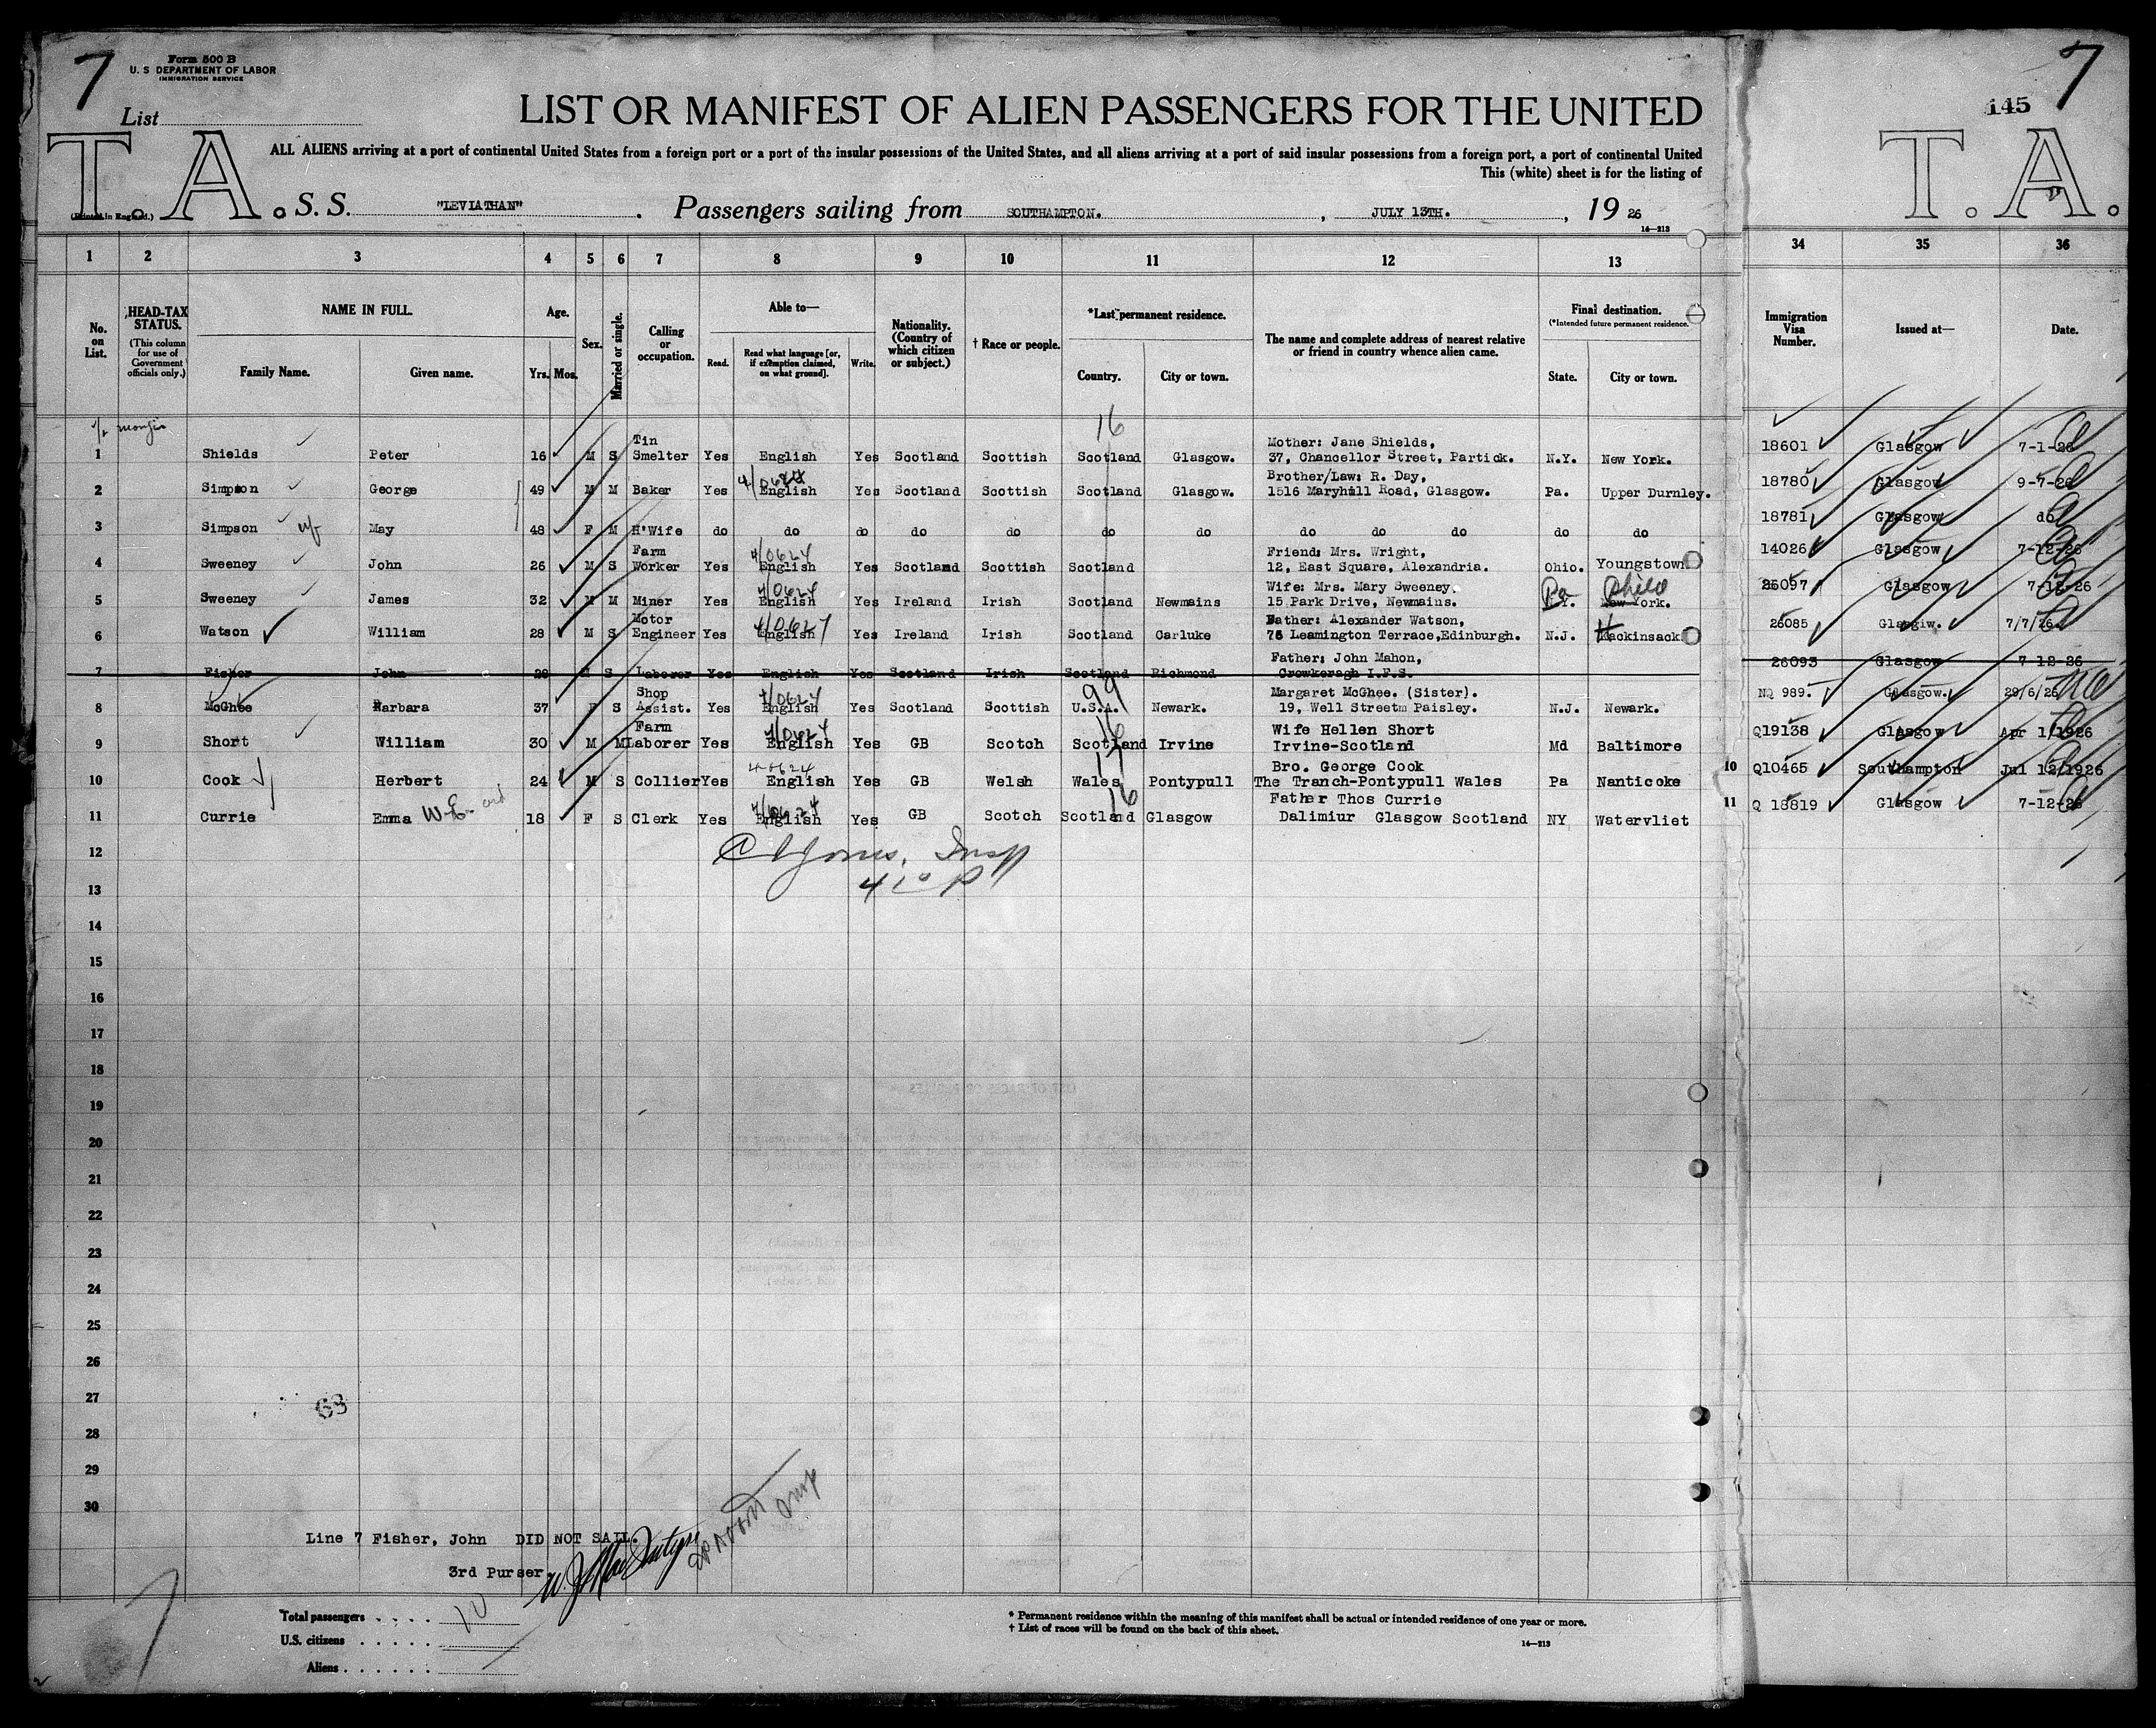 7
Form 500 B
U. S DEPARTMENT OF LABOR
IMMIGRATION SERVICE
List
145 7
LIST OR MANIFEST OF ALIEN PASSENGERS FOR THE UNITED
T. A.
T. A.
ALL ALIENS arriving at a port of continental United States from a foreign port or a port of the insular possessions of the United States, and all aliens arriving at a port of said insular possessions from a foreign port, a port of continental United
This (white) sheet is for the listing of
(Printed in England.)
S. S. "LEVIATHAN" . Passengers sailing from SOUTHAMPTON. , JULY 13TH. , 19 26
14—213
1 2 3 4 5 6 7 8 9 10 11 12 13 34 35 36
No. on List.
HEAD-TAX STATUS.
(This column for use of Government officials only.)
NAME IN FULL.
Family Name. Given name.
Age.
Yrs. Mos.
Sex.
Married or single.
Calling or occupation.
Able to—
Read. Read what language [or, if exemption claimed, on what ground]. Write.
Nationality. (Country of which citizen or subject.)
† Race or people.
*Last permanent residence.
Country. City or town.
The name and complete address of nearest relative or friend in country whence alien came.
Final destination.
(*Intended future permanent residence.)
State. City or town.
Immigration Visa Number.
Issued at—
Date.
16
1 Shields Peter 16 M S Tin Smelter Yes English Yes Scotland Scottish Scotland Glasgow. Mother: Jane Shields, 37, Chancellor Street, Partick. N.Y. New York. 18601 Glasgow 7-1-26
2 Simpson George 49 M M Baker Yes English Yes Scotland Scottish Scotland Glasgow. Brother/Law: R. Day, 1516 Maryhill Road, Glasgow. Pa. Upper Durnley. 18780 Glasgow 9-7-26
3 Simpson May 48 F M H'Wife do do do do do do do do do do do do 18781 Glasgow do
4 Sweeney John 26 M S Farm Worker Yes 4/0624 English Yes Scotland Scottish Scotland Friend: Mrs. Wright, 12, East Square, Alexandria. Ohio. Youngstown 14026 Glasgow 7-12-26
5 Sweeney James 32 M M Miner Yes 4/0624 English Yes Ireland Irish Scotland Newmains Wife: Mrs. Mary Sweeney. 15 Park Drive, Newmains. Pa Phila New York. 26097 Glasgow 7-12-26
6 Watson William 28 M S Motor Engineer Yes English Yes Ireland Irish Scotland Carluke Father: Alexander Watson, 75 Leamington Terrace,Edinburgh. N.J. Hackinsack 26085 Glasgiw. 7/7/26
7 Fisher John 29 M S Laborer Yes English Yes Scotland Irish Scotland Richmond Father: John Mahon, Crowkeragh I.F.S. 26093 Glasgow 7-12-26
8 McGhee Barbara 37 F S Shop Assist. Yes 4/0624 English Yes Scotland Scottish 99 U.S.A. Newark. Margaret McGhee. (Sister). 19, Well Streetm Paisley. N.J. Newark. NQ 989. Glasgow. 29/6/26
9 Short William 30 M M Farm Laborer Yes 4/0624 English Yes GB Scotch 16 Scotland Irvine Wife Hellen Short Irvine-Scotland Md Baltimore Q19138 Glasgow Apr 1/1926
10 Cook Herbert 24 M S Collier Yes English Yes GB Welsh 17 Wales Pontypull Bro. George Cook The Tranch-Pontypull Wales Pa Nanticoke 10 Q10465 Southampton Jul 12/1926
11 Currie Emma 18 F S Clerk Yes English Yes GB Scotch 16 Scotland Glasgow Father Thos Currie Dalimiur Glasgow Scotland NY Watervliet 11 Q 18819 Glasgow 7-12-26
12
13
14
15
16
17
18
19
20
21
22
23
24
25
26
27
28
29
30
63
Line 7 Fisher, John DID NOT SAIL.
3rd Purser
Total passengers . . . . 10
U.S. citizens . . . . .
Aliens . . . . . .
* Permanent residence within the meaning of this manifest shall be actual or intended residence of one year or more.
† List of races will be found on the back of this sheet.
14—213